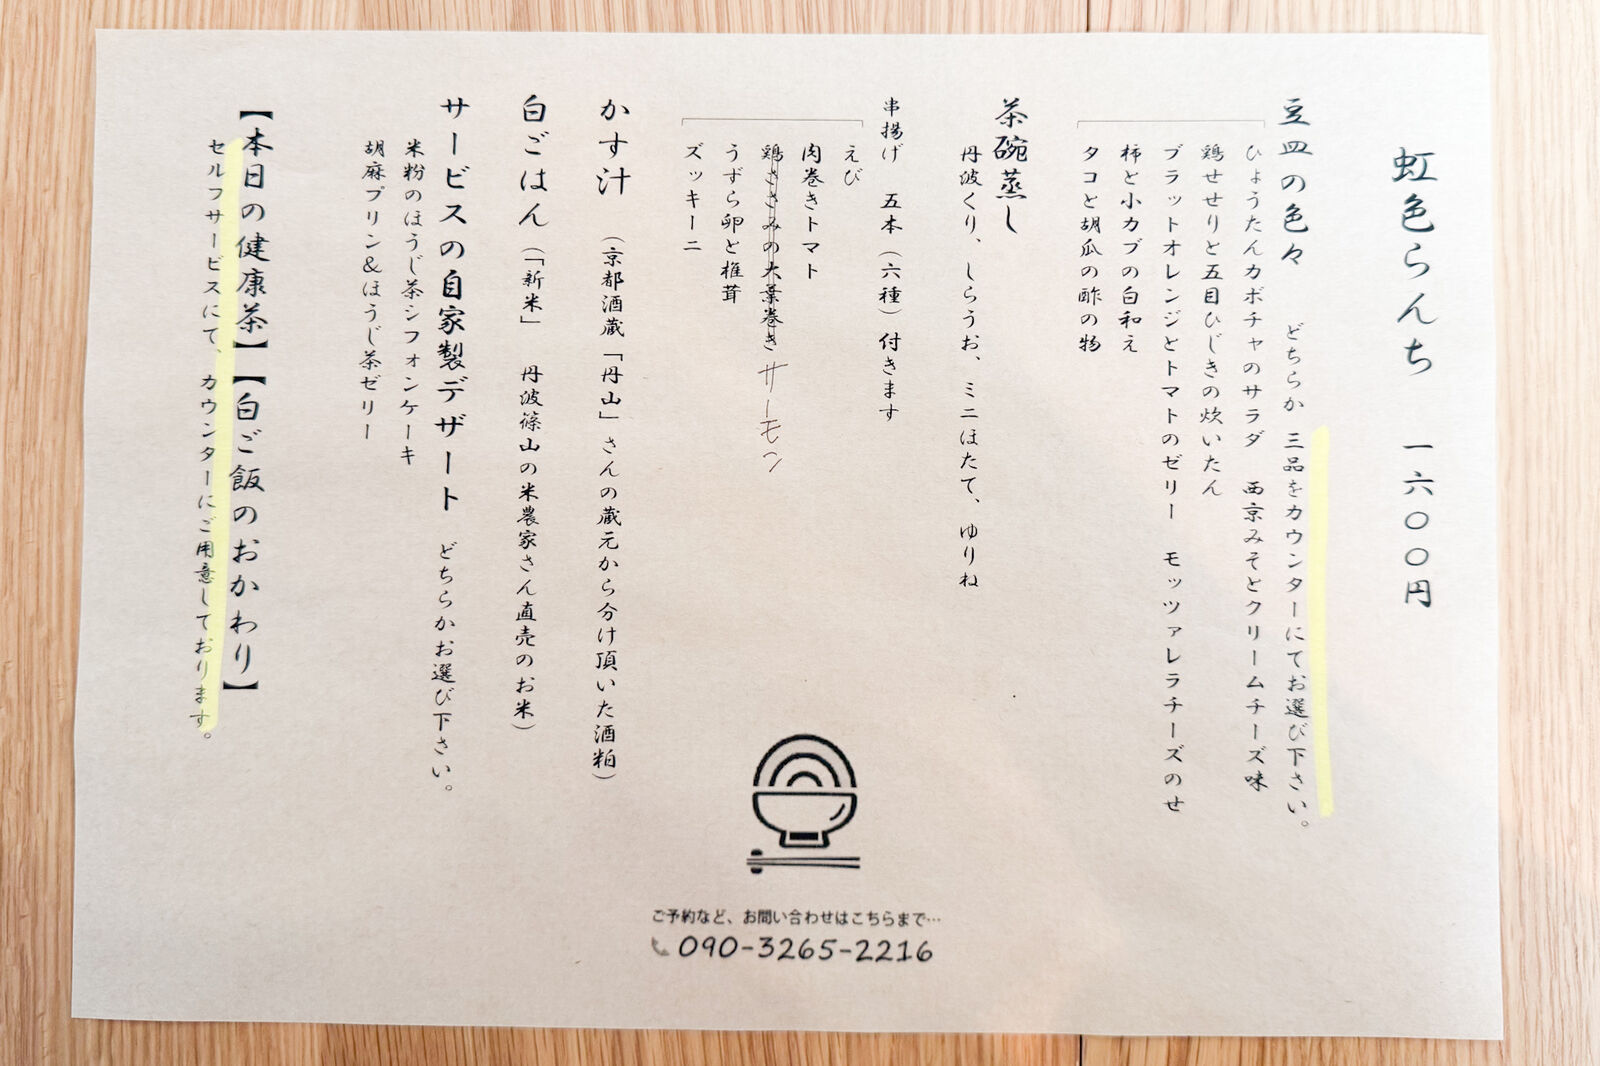 虹色らんち 一六〇〇円
豆皿の色々 どちらか 三品をカウンターにてお選び下さい。
ひょうたんカボチャのサラダ 西京みそとクリームチーズ味
鶏せせりと五目ひじきの炊いたん
ブラットオレンジとトマトのゼリー モッツァレラチーズのせ
柿と小カブの白和え
タコと胡瓜の酢の物
茶碗蒸し
丹波くり、しらうお、ミニほたて、ゆりね
串揚げ 五本（六種）付きます
えび
肉巻きトマト
鶏ささみの大葉巻き サーモン
うずら卵と椎茸
ズッキーニ
かす汁 （京都酒蔵「丹山」さんの蔵元から分け頂いた酒粕）
白ごはん（「新米」 丹波篠山の米農家さん直売のお米）
サービスの自家製デザート どちらかお選び下さい。
米粉のほうじ茶シフォンケーキ
胡麻プリン&ほうじ茶ゼリー
【本日の健康茶】【白ご飯のおかわり】
セルフサービスにて、カウンターにご用意しております。
ご予約など、お問い合わせはこちらまで…
090-3265-2216